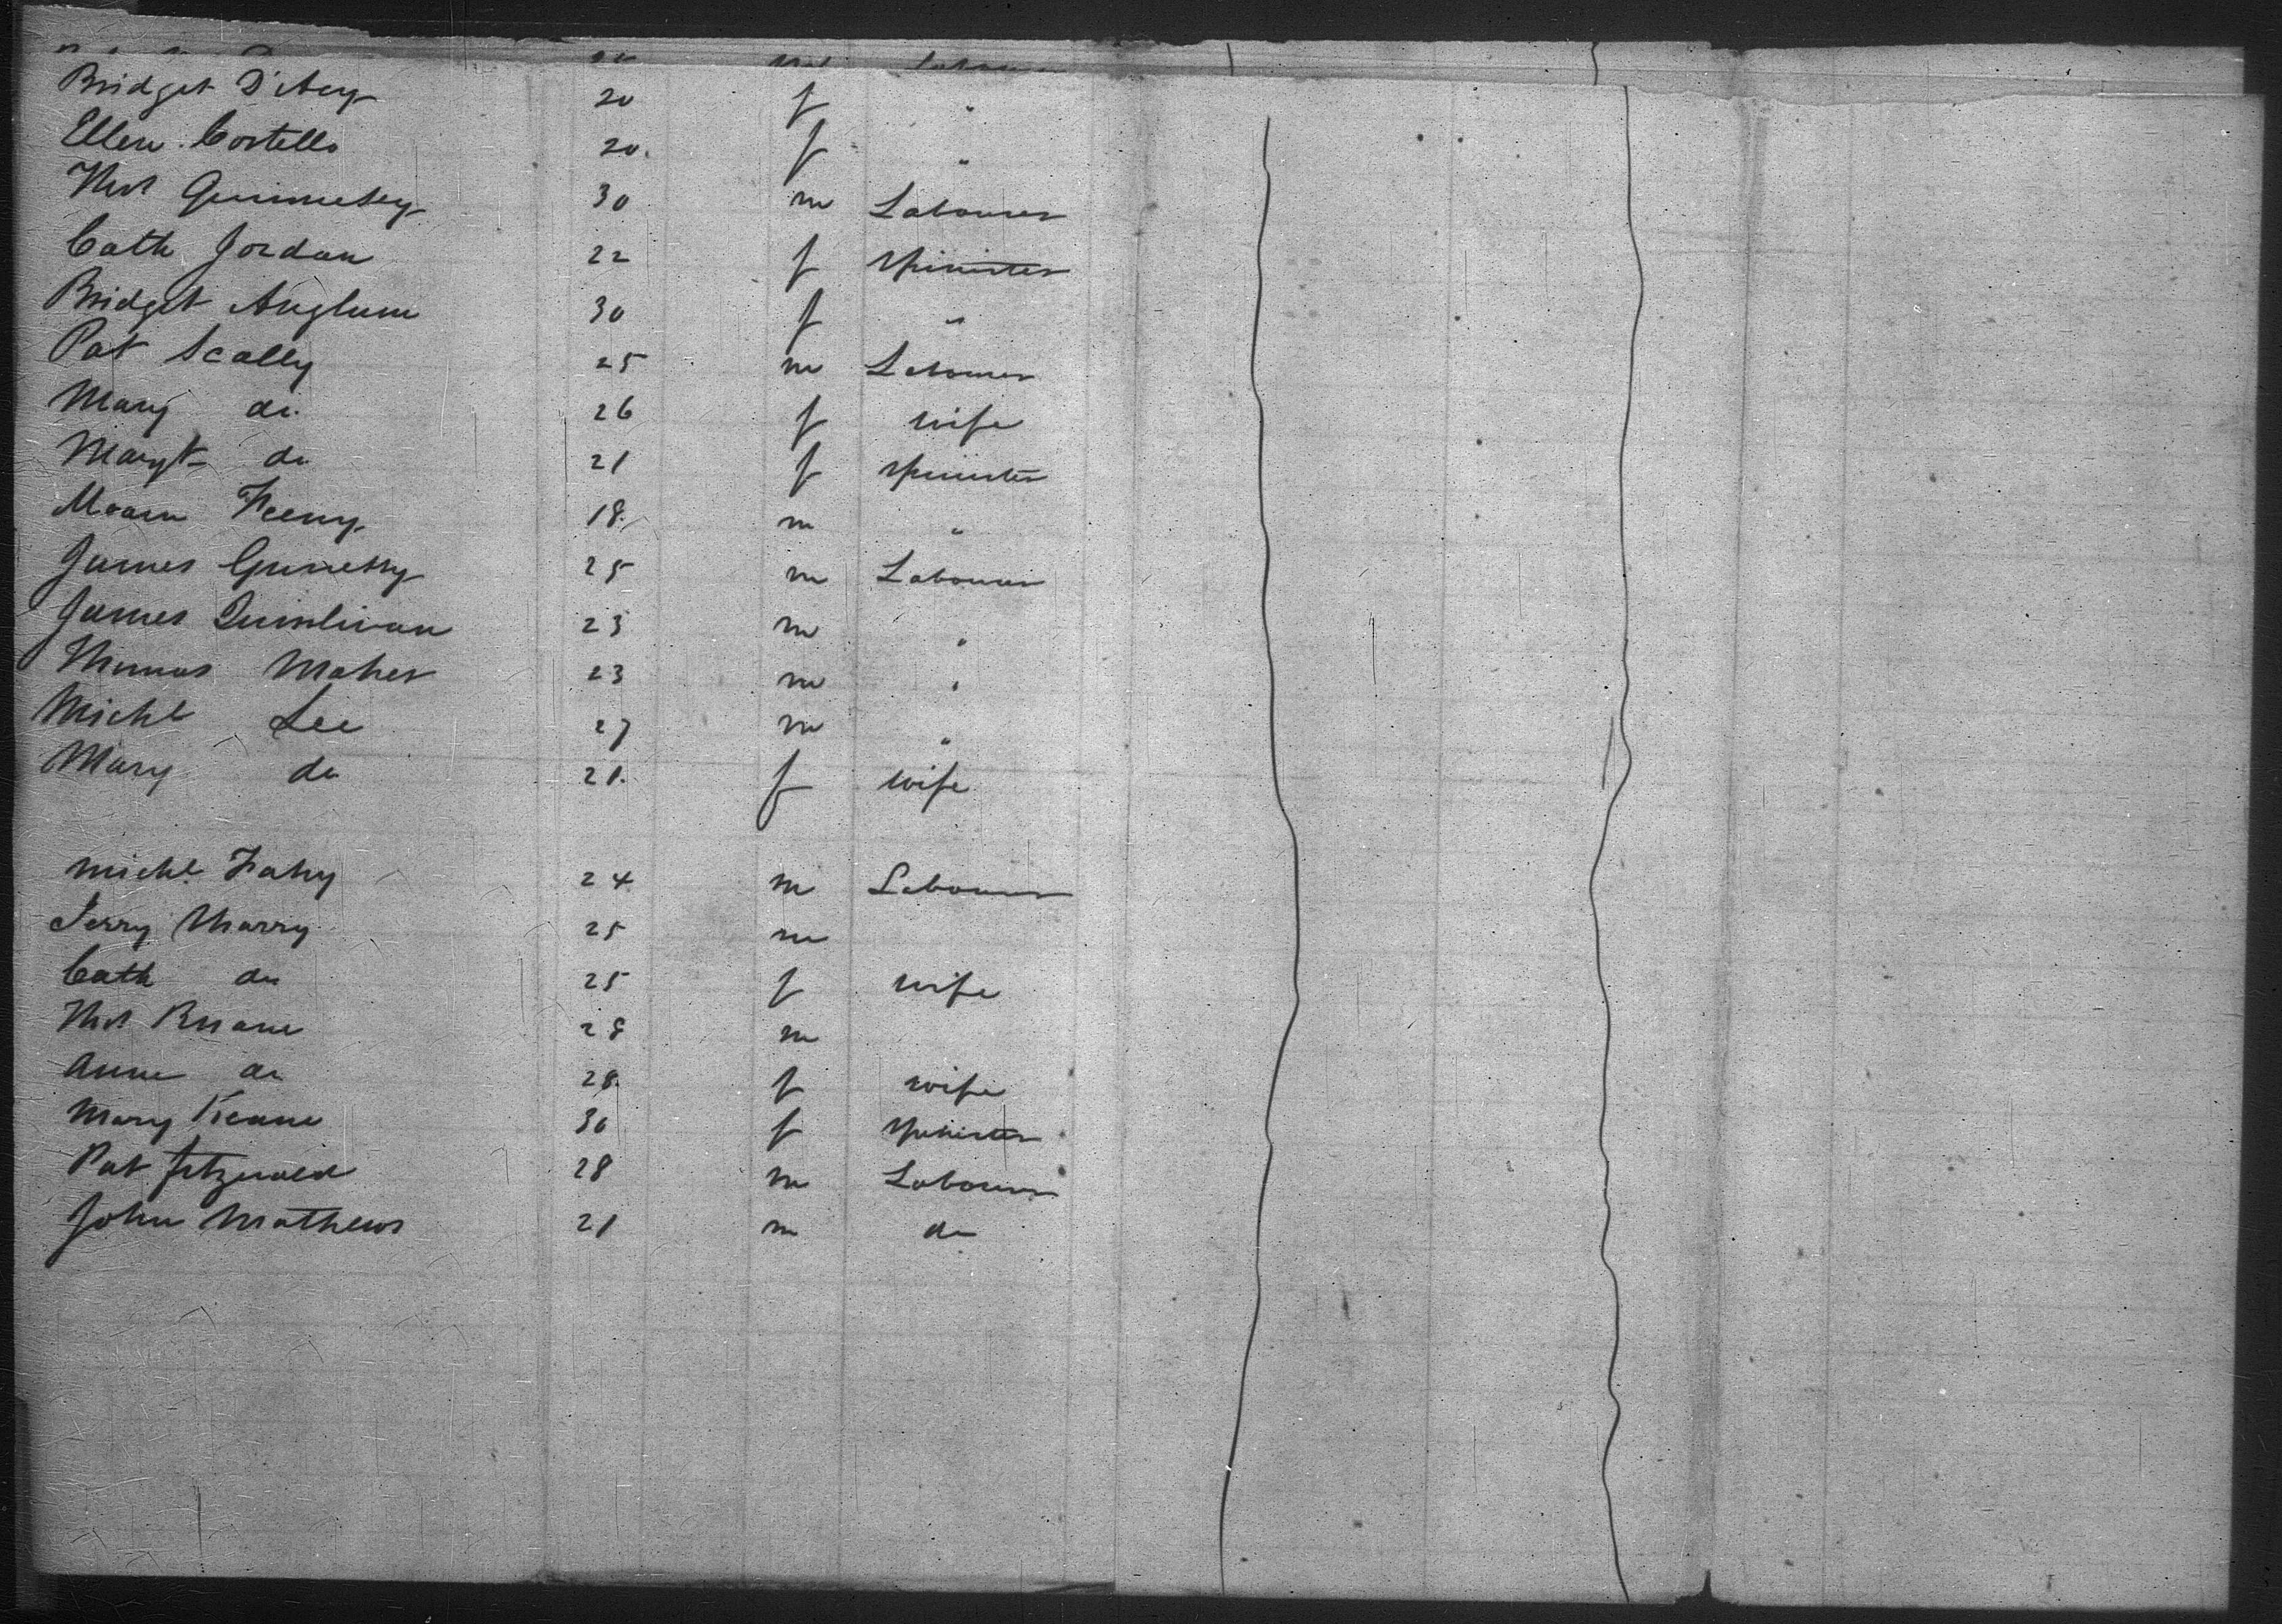 Bridget D'Arcy 20 f "
Ellen Costello 20. f "
Thos 30 m Labourer
Cath Jordan 22 f spinster
Bridget Anglum 30 f "
Pat Scally 25 m Labourer
Mary do. 26 f wife
Margt do 21 f spinster
Feeny 18. m "
James 25 m Labourer
James Quinlivan 23 m "
Thomas Maher 23 m "
Michl Lee 27 m "
Mary do 21. f wife
Michl Fahy 24 m Labourer
Terry Marry 25 m
Cath do 25 f wife
Thos Ruane 28 m
Anne do 28. f wife
Mary Keane 30 f spinster
Pat Fitzgerald 28 m Labourer
John Mathews 21 m do